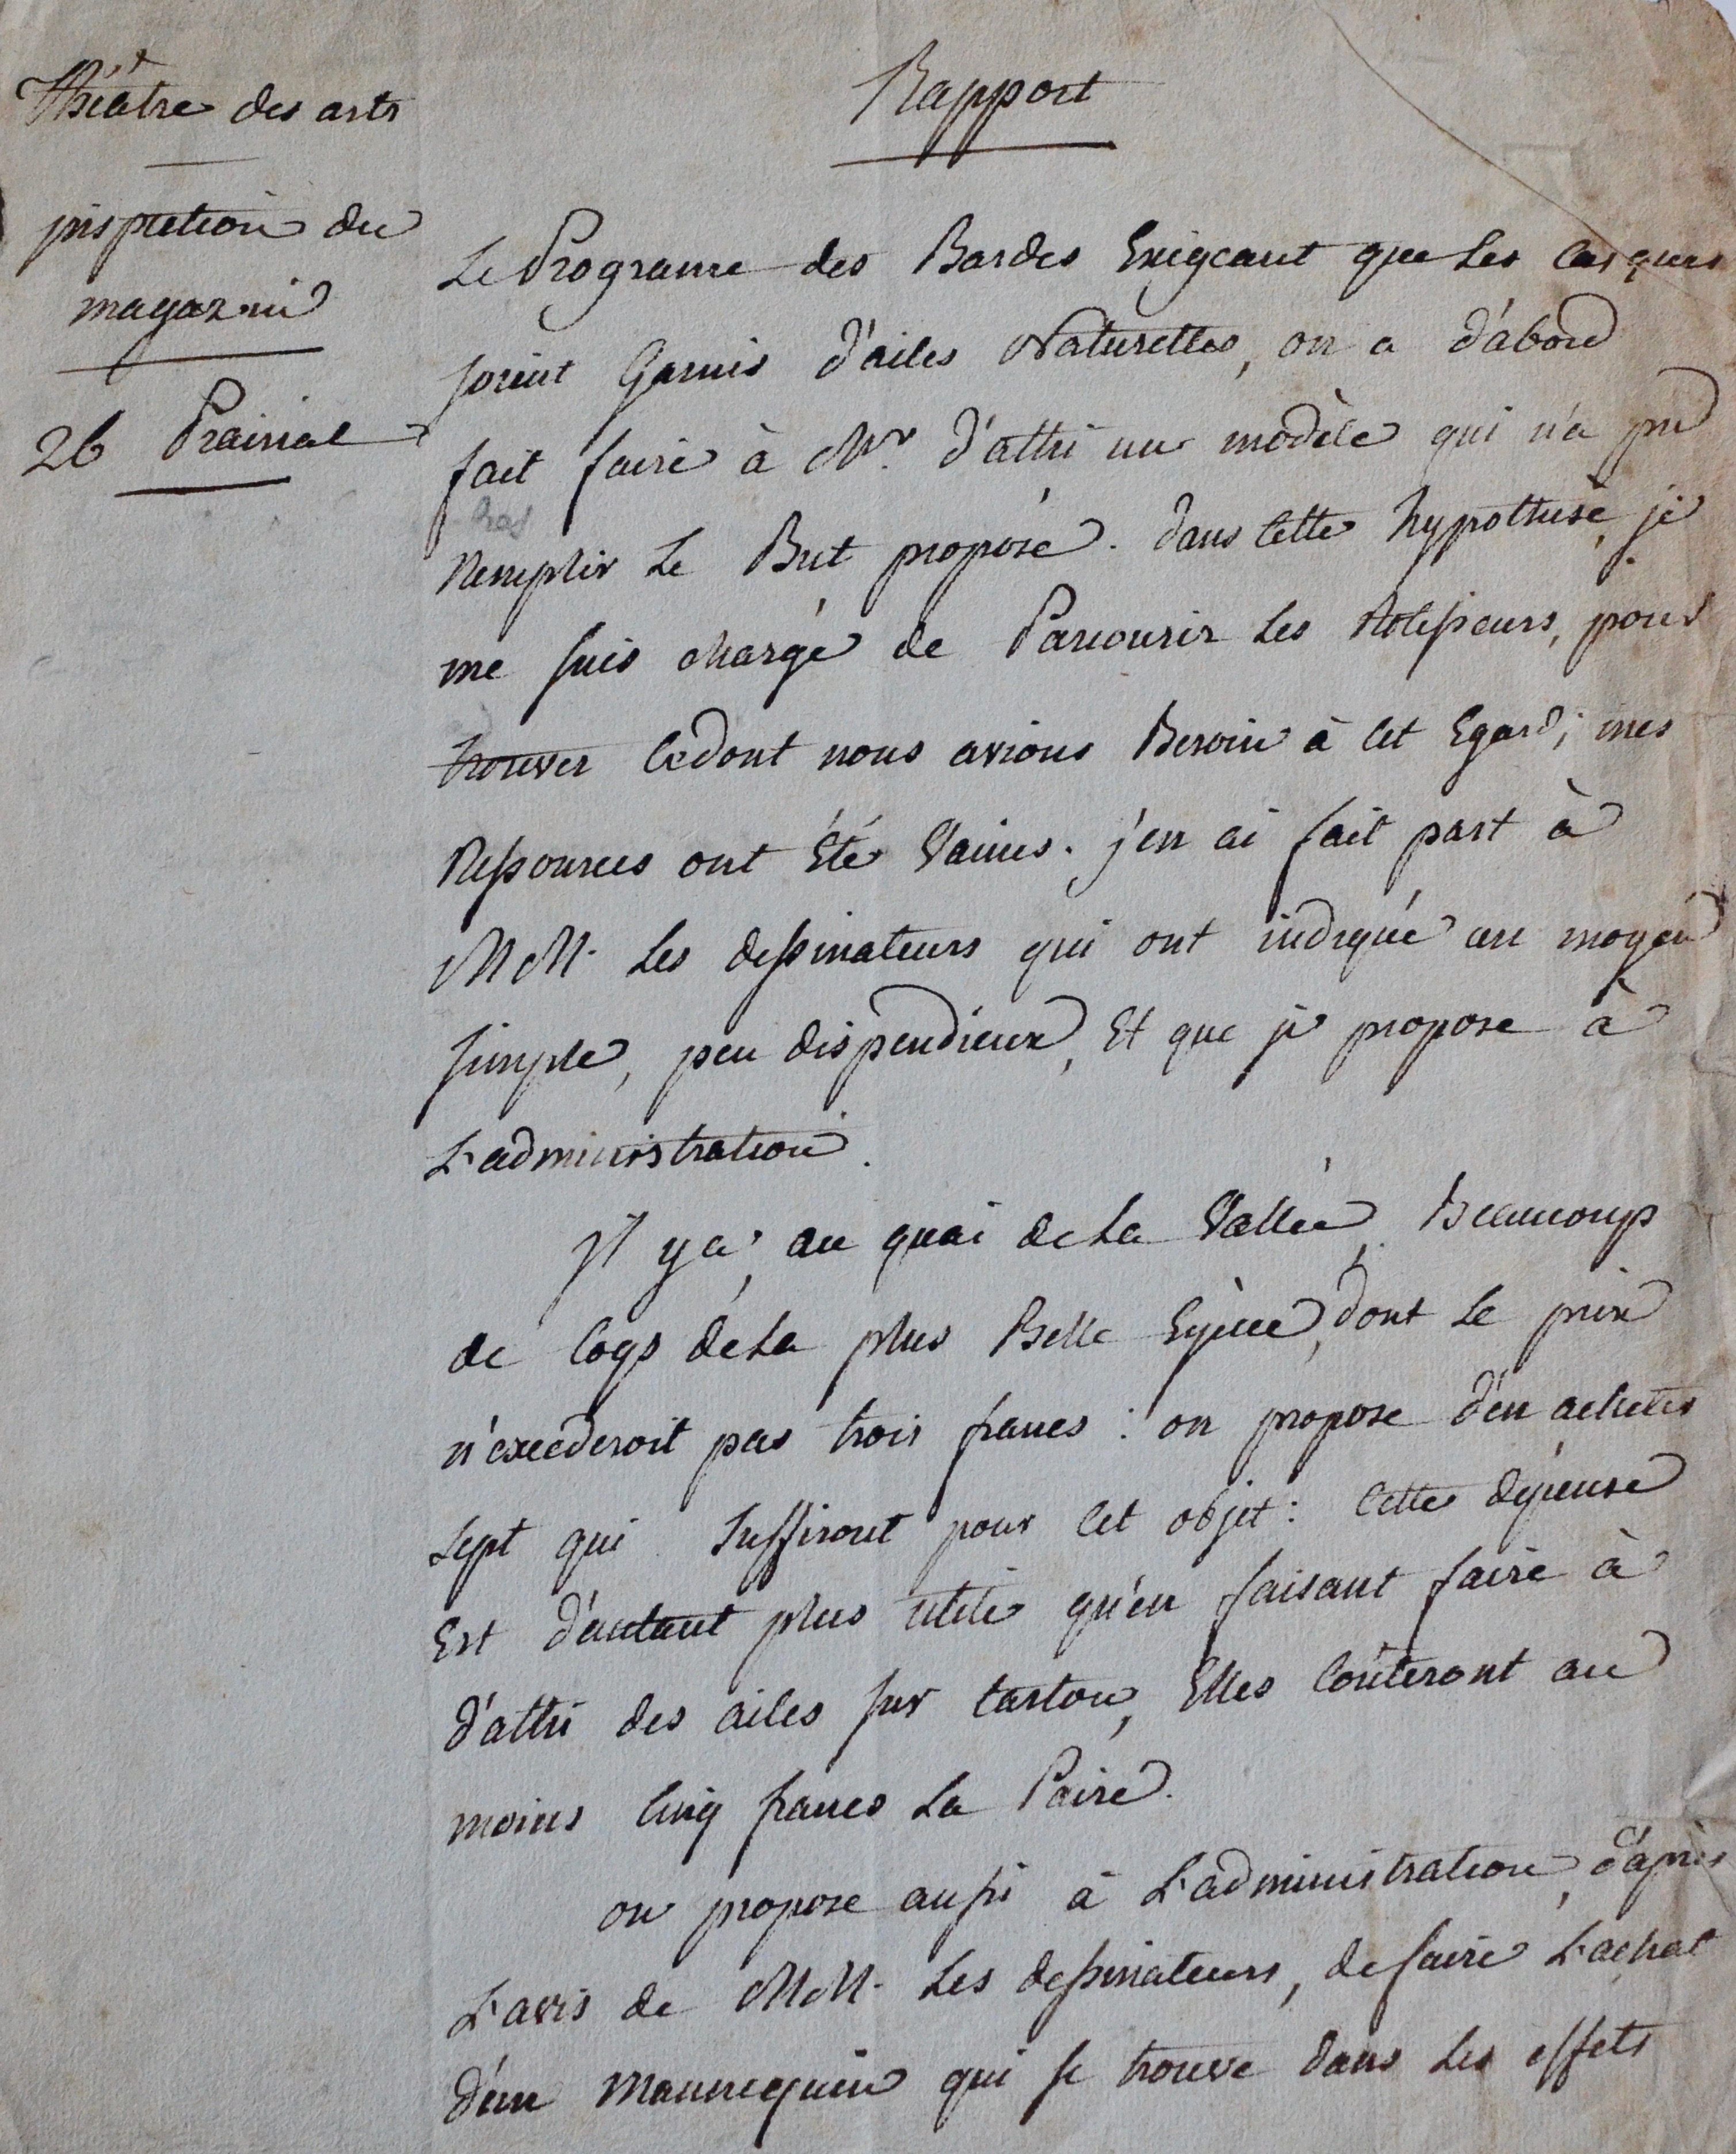 Théâtre des arts
inspection du
magazin
26 Prairial
Rapport
Le Programe des Bardes Exigeant que les Casques
soient Garnis d'ailes Naturelles, on a d'abord
fait faire à Mr. d'attri un modèle qui n'a pu
Remplir Le But proposé. dans Cette hypothese, je
me suis chargé de Parcourir les Rotisseurs, pour
trouver Ce dont nous avions Besoin à Cet Egard; mes
Ressources ont Été Vaines. j'en ai fait part à
M M. Les dessinateurs qui ont indiqué un moyen
simple, peu dispendieux, Et que je propose à
L'administration.
Il y a, au quai de La Vallée, Beaucoup
de Coqs de La plus Belle Espèce, dont Le prix
n'excederoit pas trois francs : on propose d'en acheter
sept qui suffiront pour Cet objet : Cette dépense
Est d'autant plus utile qu'en faisant faire à
d'attri des ailes sur Carton, Elles Coûteront au
moins Cinq francs La Paire.
on propose aussi à L'administration, d'après
L'avis de M M. Les dessinateurs, de faire L'achat
d'un Mannequin qui se trouve dans Les effets